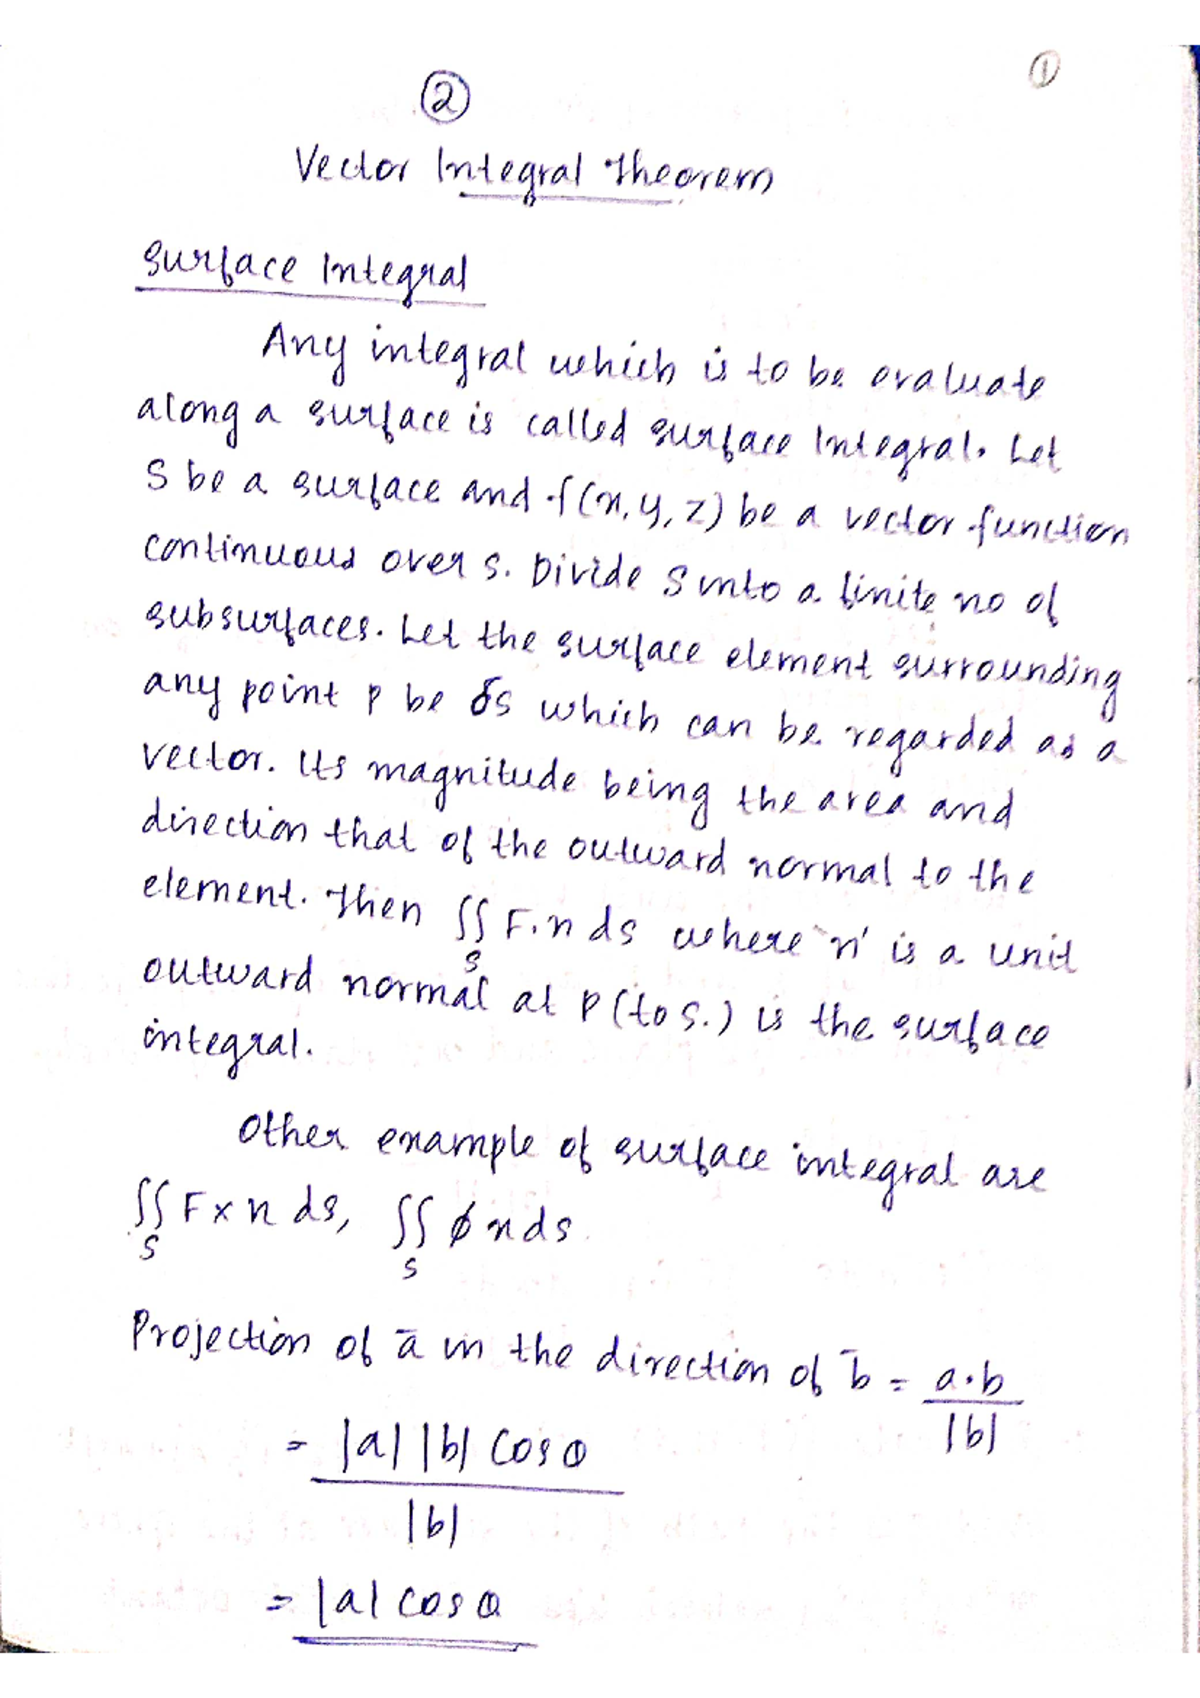 ①
②
Vector Integral Theorem
Surface Integral
Any integral which is to be evaluate
along a surface is called surface Integral. Let
S be a surface and f(x, y, z) be a vector function
continuous over s. Divide S into a finite no of
subsurfaces. Let the surface element surrounding
any point p be δs which can be regarded as a
vector. Its magnitude being the area and
direction that of the outward normal to the
element. Then ∬ F.n ds where 'n' is a unit
S
outward normal at P (to S.) is the surface
integral.
Other example of surface integral are
∬ F x n ds, ∬ ϕ n ds
S S
Projection of a̅ in the direction of b̅ = a.b
|b|
= |a| |b| cos θ
|b|
= |a| cos θ